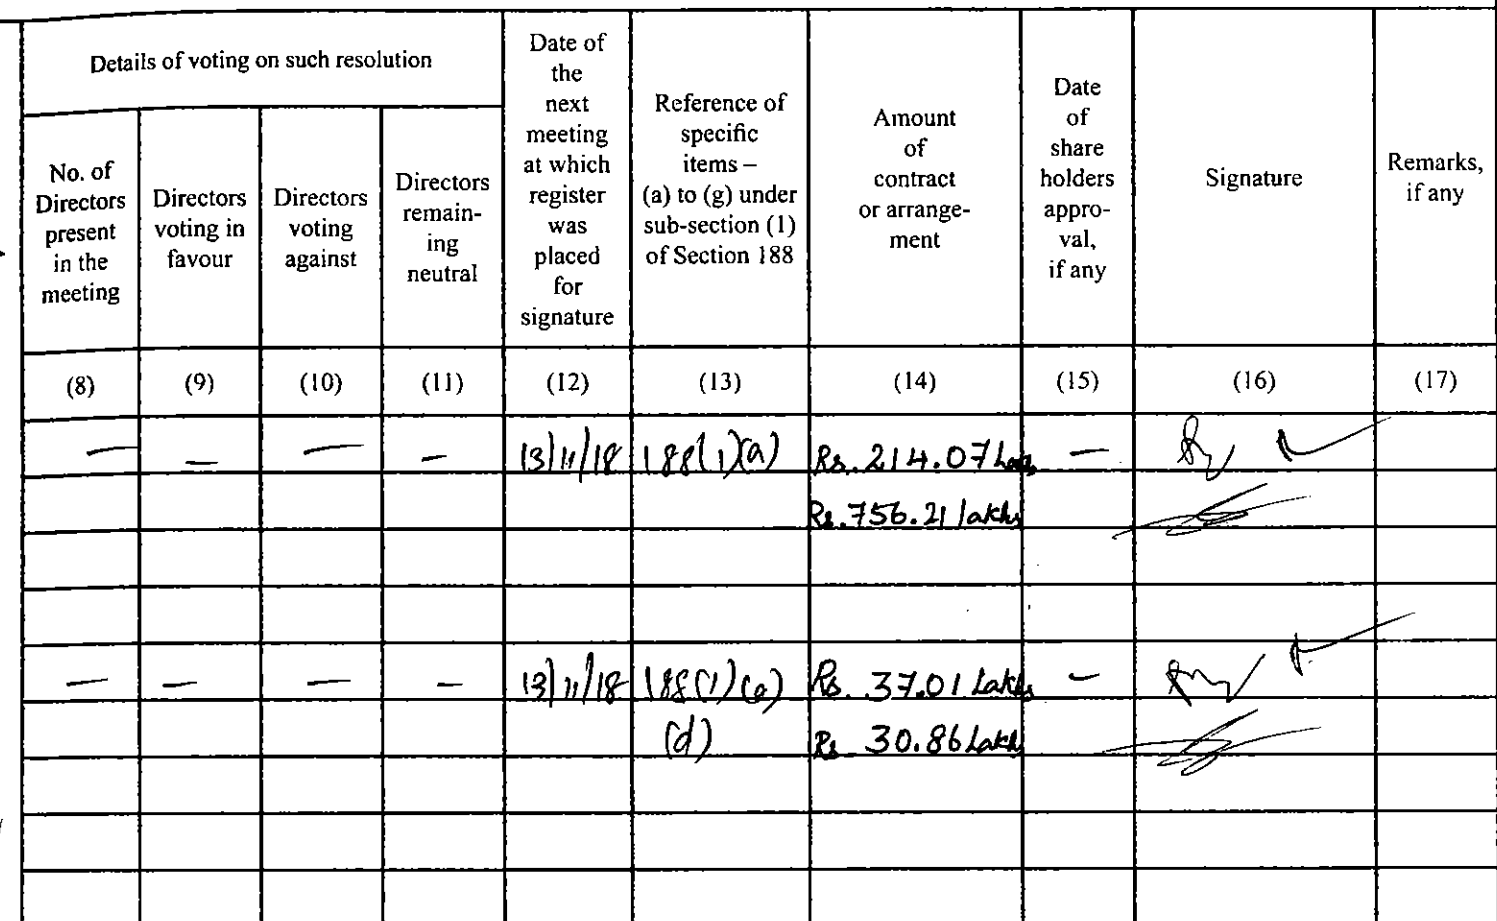 Details of voting on such resolution
No. of
Directors
present
in the
meeting
Directors
voting in
favour
Directors
voting
against
Directors
remain-
ing
neutral
Date of
the
next
meeting
at which
register
was
placed
for
signature
Reference of
specific
items –
(a) to (g) under
sub-section (1)
of Section 188
Amount
of
contract
or arrange-
ment
Date
of
share
holders
appro-
val,
if any
Signature
Remarks,
if any
(8) (9) (10) (11) (12) (13) (14) (15) (16) (17)
— — — — 13/11/18 188(1)(a) Rs. 214.07 Lakhs —
Rs. 756.21 lakhs
— — — — 13/11/18 188(1)(a) Rs. 37.01 Lakhs —
(d) Rs. 30.86 Lakhs